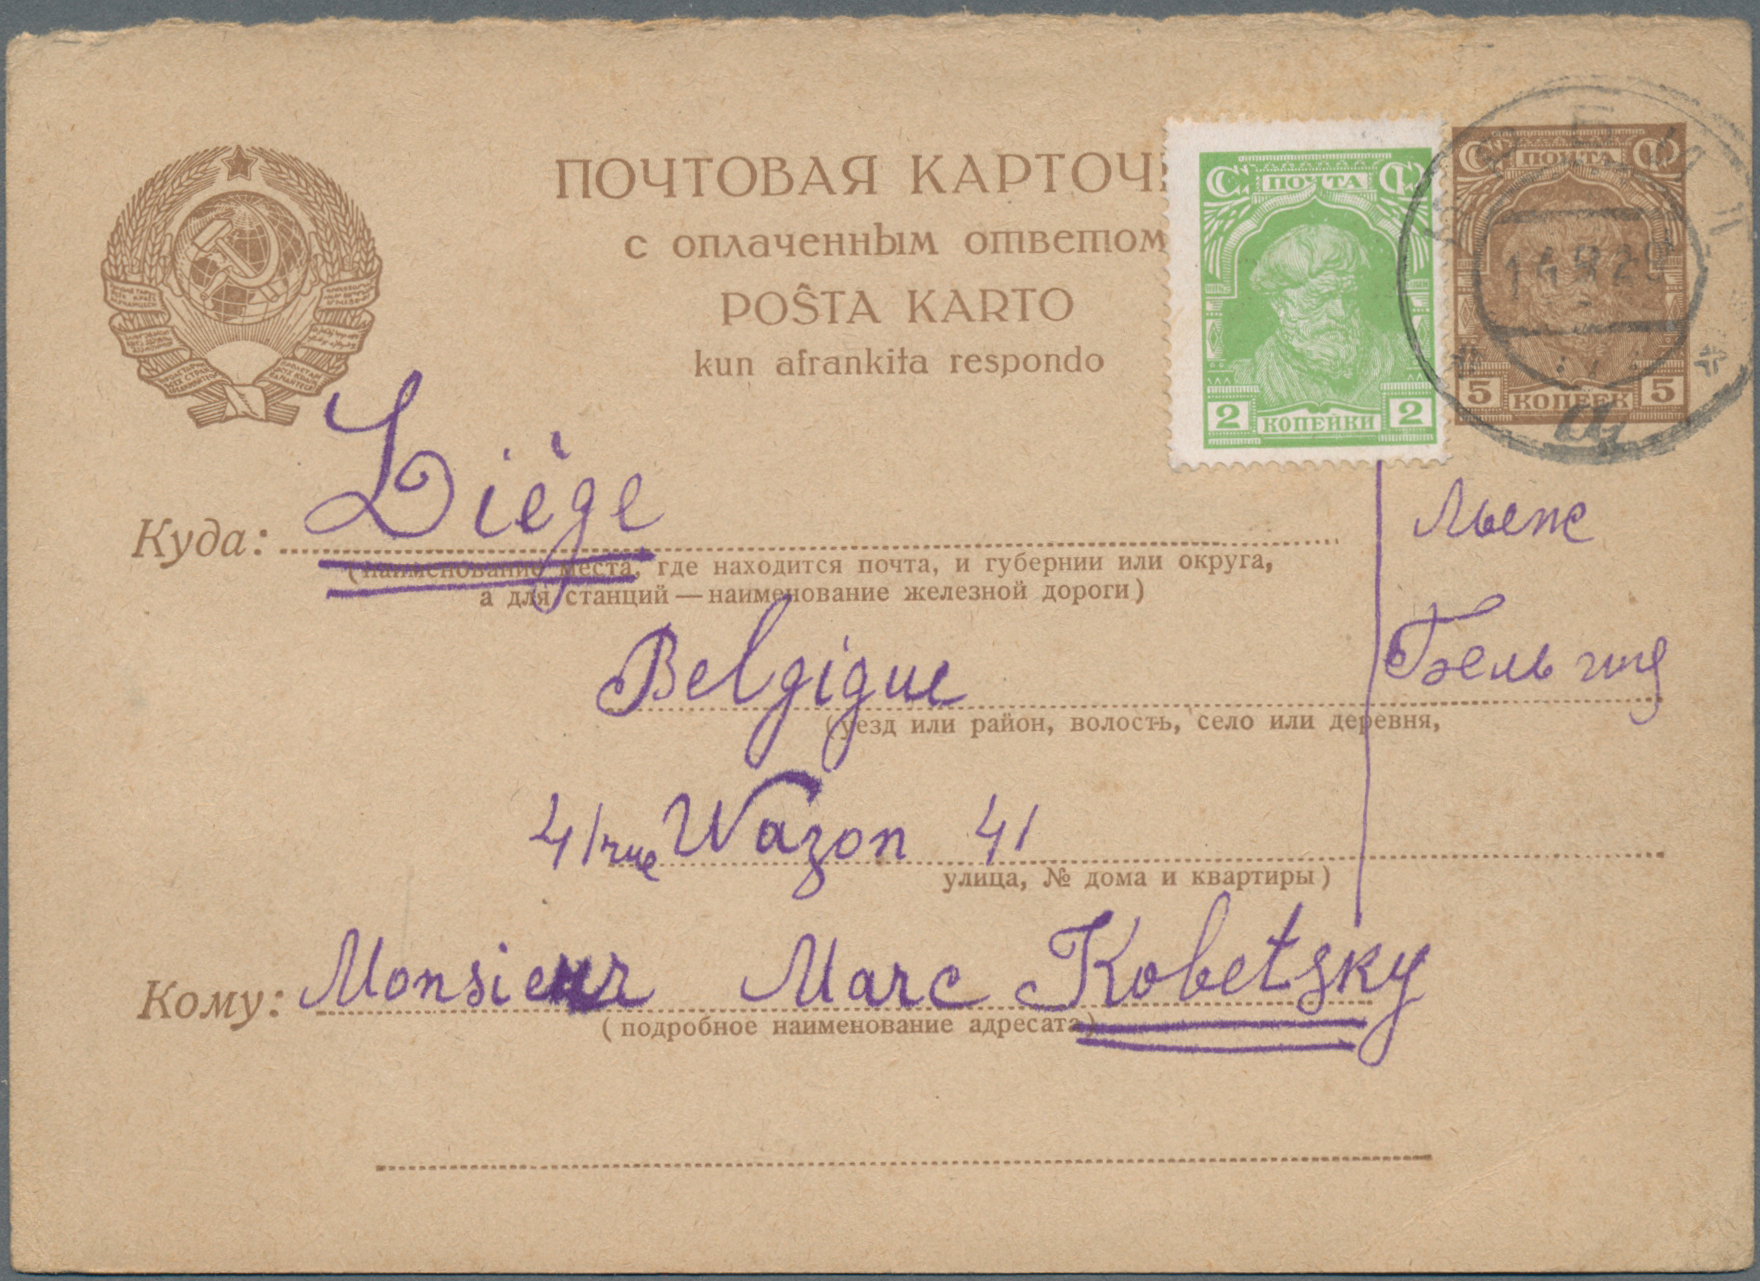 ПОЧТОВАЯ КАРТОЧ
с оплаченным ответом
POŜTA KARTO
kun afrankita respondo
ПОЧТА
2 КОПЕЙКИ 2
ПОЧТА
5 КОПЕЕК 5
Куда: Liège
Льеж
(наименование места, где находится почта, и губернии или округа,
а для станций — наименование железной дороги)
Belgique
Бельгия
(уезд или район, волость, село или деревня,
41 rue Wazon 41
улица, № дома и квартиры)
Кому: Monsieur Marc Kobetsky
(подробное наименование адресата)